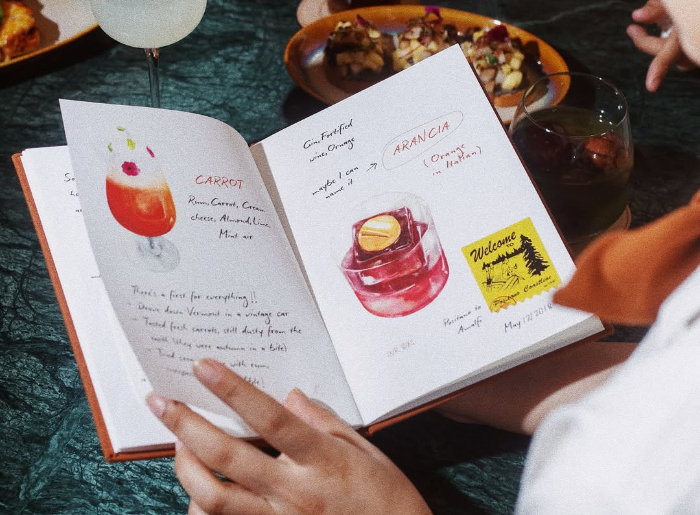 CARROT
Rum, Carrot, Cream
cheese, Almond, Lime,
Mint air
There's a first for everything!!
Down Vermont in a vintage car
Tasted fresh carrots, still dusty from the
(they were autumn in a bite)
with rum
Gin, Fortified
wine, Orange
maybe I can
name it
ARANCIA
(Orange
in Italian)
Welcome
TO
Positano to
Amalfi
May 12/2018